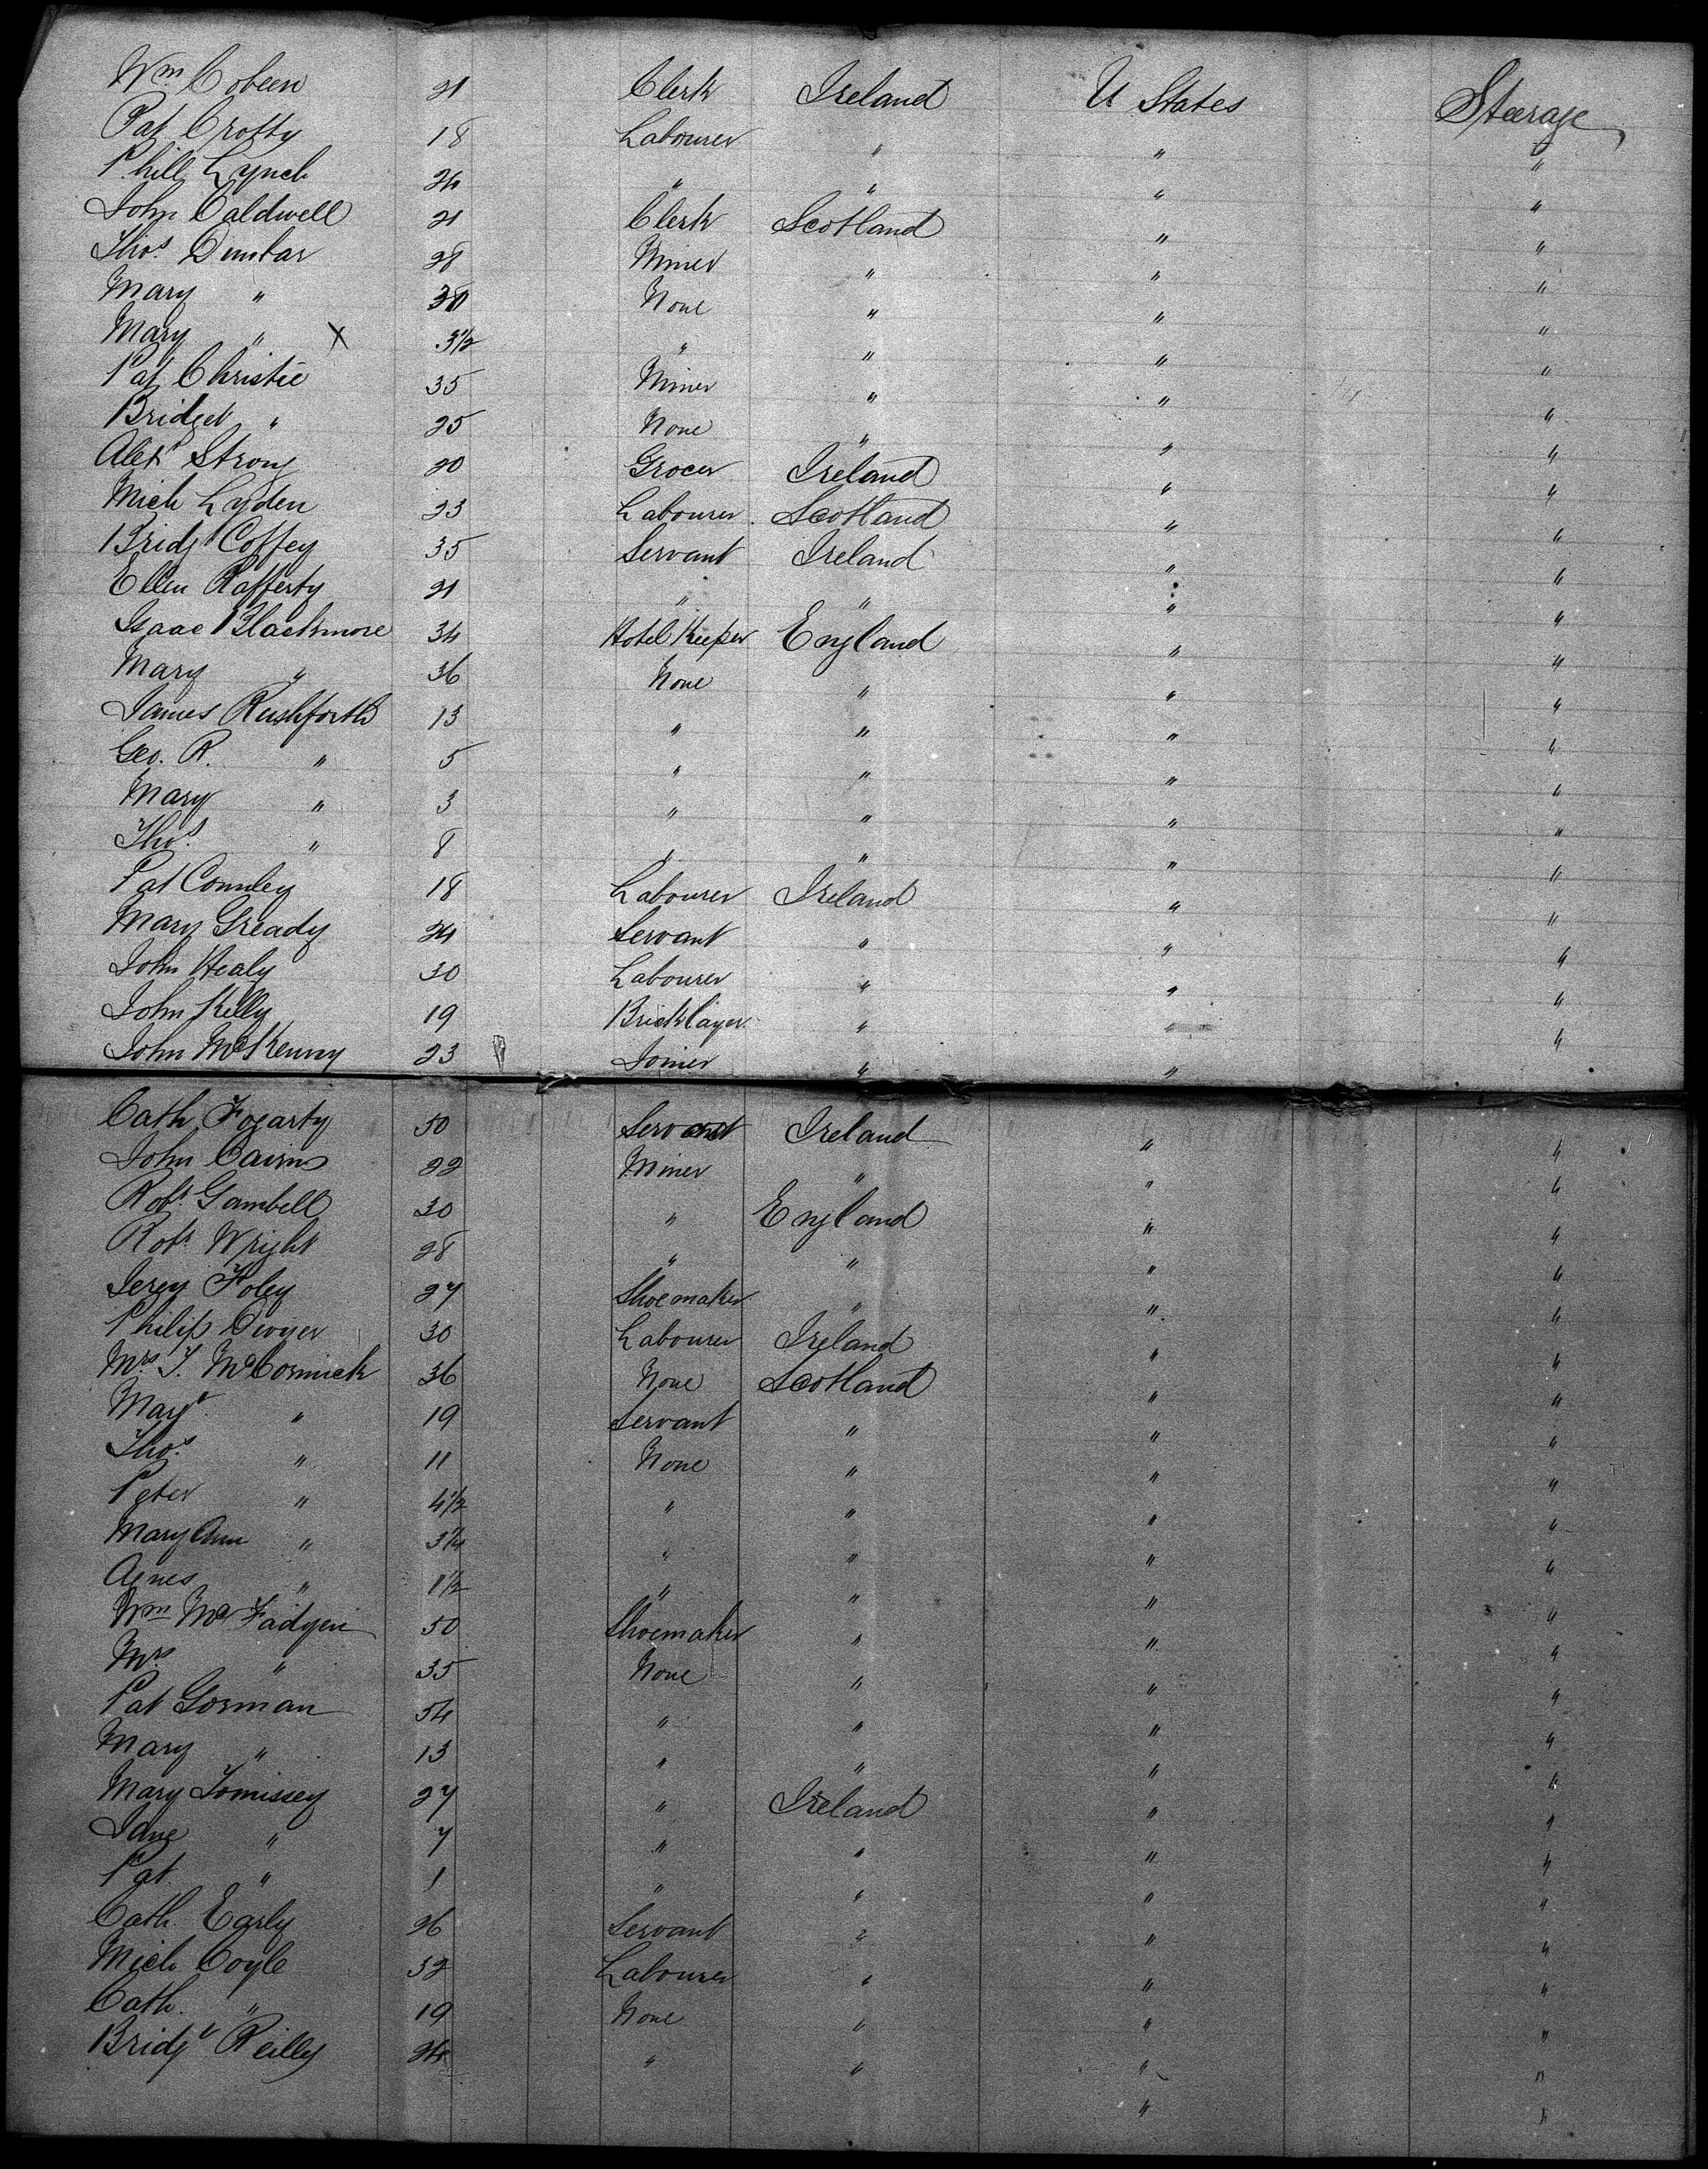 Wm Cobeen 21 Clerk Ireland U States Steerage
Pat Crotty 18 Labourer " " "
Phill Lynch 24 " " " "
John Caldwell 21 Clerk Scotland " "
Thos. Dunbar 28 Miner " " "
Mary " 30 None " " "
Mary " X 3½ " " " "
Pat Christie 35 Miner " " "
Bridget " 25 None " " "
Alexr Strong 20 Grocer Ireland " "
Mich Lyden 23 Labourer Scotland " "
Bridgt Coffey 35 Servant Ireland " "
Ellen Rafferty 21 " " " "
Isaac Blackmore 34 Hotel Keeper England " "
Mary " 36 None " " "
James Rushforth 13 " " " "
Geo. R. " 5 " " " "
Mary " 3 " " " "
Thos. " 8 " " " "
Pat Connley 18 Labourer Ireland " "
Mary Gready 24 Servant " " "
John Healy 30 Labourer " " "
John Kelly 19 Bricklayer " " "
John McKenny 23 Joiner " " "
Cath Fogarty 50 Servant Ireland " "
John Cairns 22 Miner " " "
Robt. Gambell 30 " England " "
Robt. Wright 28 " " " "
Jerey Foley 27 Shoemaker " " "
Philip Dwyer 30 Labourer Ireland " "
Mrs J. McCormick 36 None Scotland " "
Mayt. " 19 Servant " " "
Thos. " 11 None " " "
Peter " 4½ " " " "
Mary Ann " 3¼ " " " "
Agnes " 1½ " " " "
Wm McFadyen 50 Shoemaker " " "
Mrs. " 35 None " " "
Pat Gorman 54 " " " "
Mary " 13 " " " "
Mary Tomissey 27 " Ireland " "
Jane " 7 " " " "
Pat. " 1 " " " "
Cath. Early 26 Servant " " "
Mich Coyle 32 Labourer " " "
Cath. " 19 None " " "
Bridgt Reilly 24 " " " "